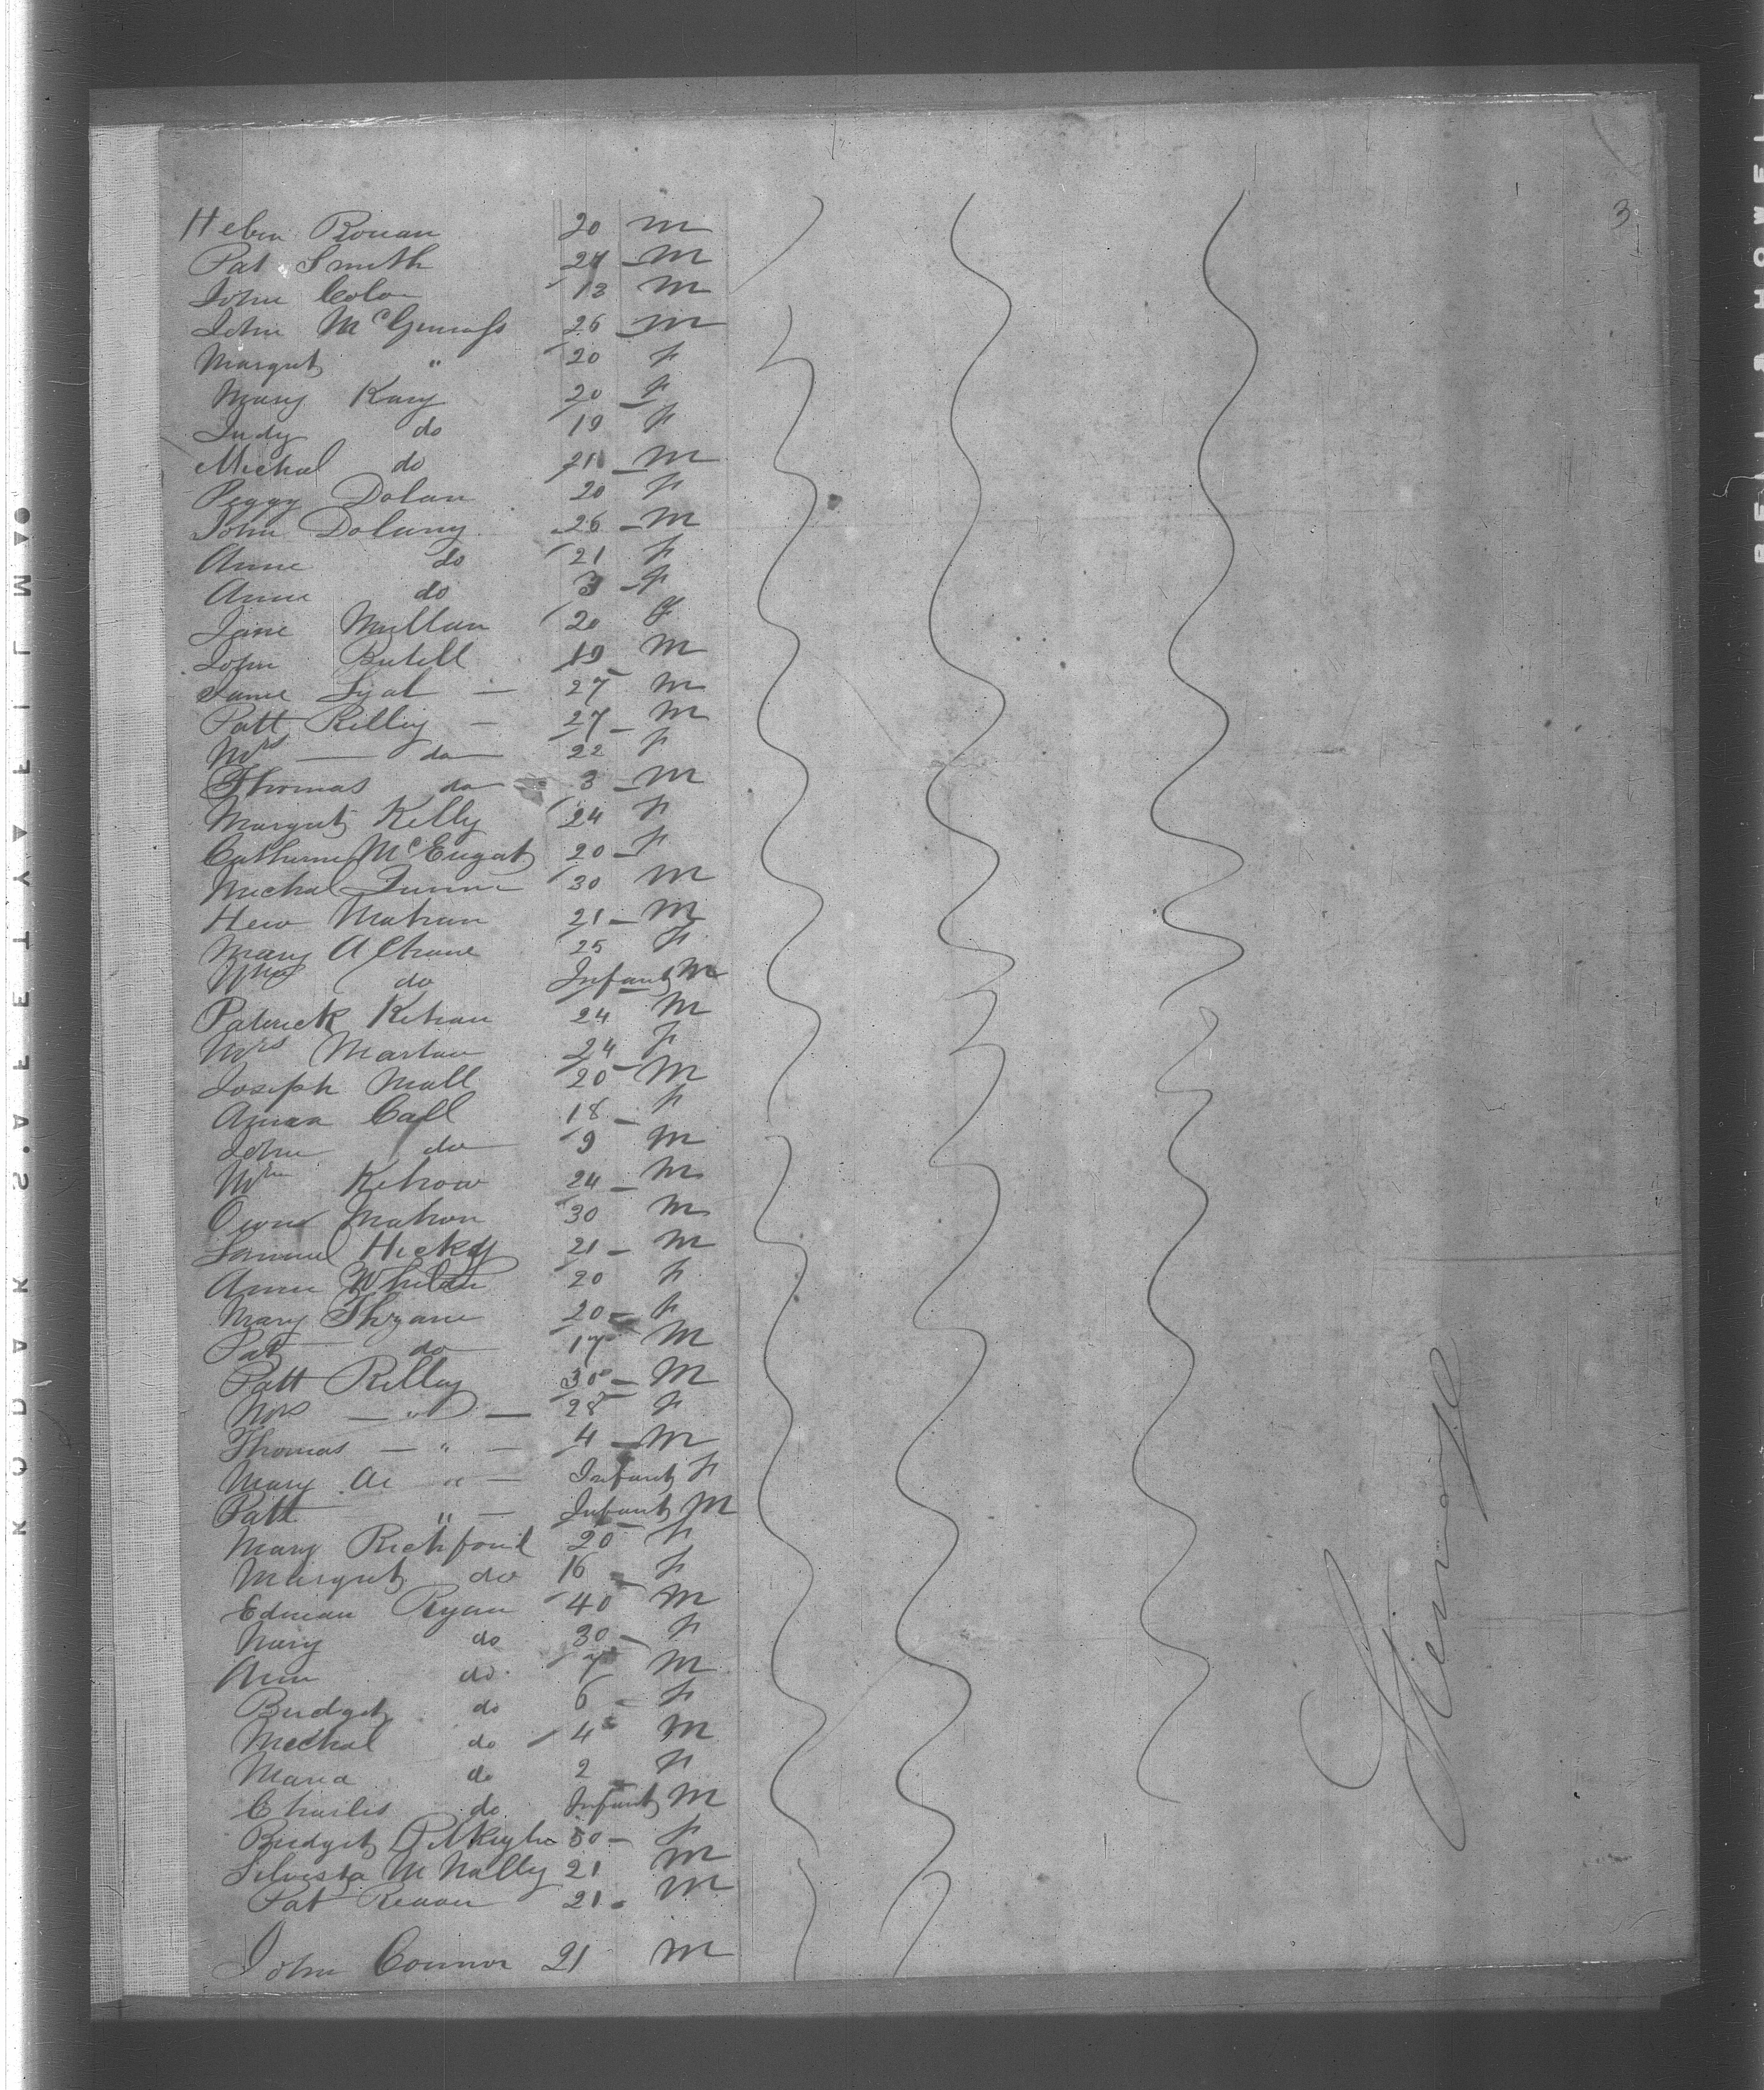 3
Helen Ronan 20 M
Pat Smith 24 M
John Colo 13 M
John McGinness 26 M
Margret " 20 F
Mary Kary 20 F
Judy do 19 F
Michal do 21 M
Peggy Dolan 20 F
John Dolany 26 M
Anne do 21 F
Anne do 3 F
Jane Mullan 20 F
John Butell 19 M
Jame Lyat 27 M
Patt Rilley 27 M
Mrs do 22 F
Thomas do 3 M
Margret Kelly 24 F
Catherine 20 F
Michal 30 M
Hew Mahan 21 M
Mary A 25 F
do Infant M
Patrick Kehan 24 M
Mrs Martan 24 F
Joseph Mall 20 M
Call 18 F
John do 9 M
Wm Kehow 24 M
Owen Mahon 30 M
Samuel Hickey 21 M
Anne Whelan 20 F
Mary 20 F
Pat do 17 M
Patt Rilley 30 M
Mrs " 28 F
Thomas " 4 M
Mary A " Infant F
Patt " Infant M
Mary Richford 20 F
Margret do 16 F
Edman Ryan 40 M
Mary do 30 F
Ann do 7 M
Bridget do 6 F
Mechal do 4 M
Maria do 2 F
Charles do Infant M
Bridget 50 F
Silvesta McNally 21 M
Pat 21 M
John Connor 21 M